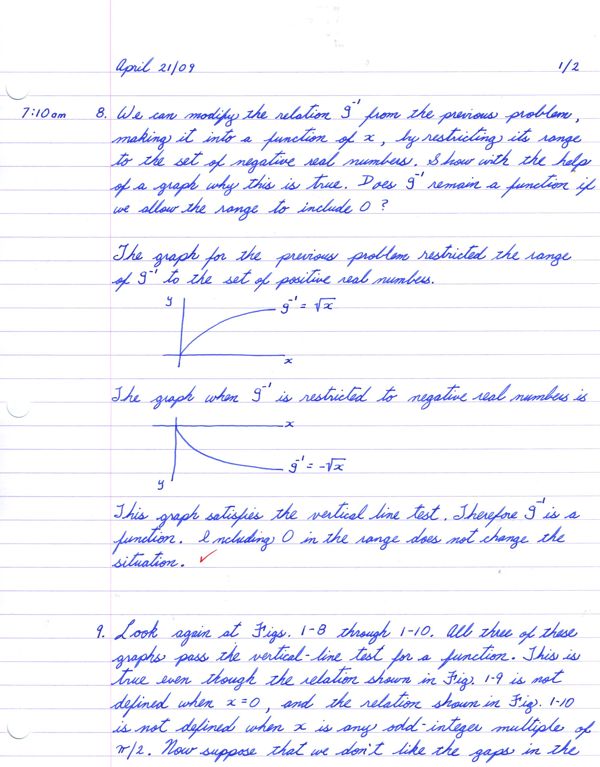 April 21/09 1/2
7:10am 8. We can modify the relation g⁻¹ from the previous problem,
making it into a function of x, by restricting its range
to the set of negative real numbers. Show with the help
of a graph why this is true. Does g⁻¹ remain a function if
we allow the range to include 0?
The graph for the previous problem restricted the range
of g⁻¹ to the set of positive real numbers.
y
g⁻¹ = √x
x
The graph when g⁻¹ is restricted to negative real numbers is
x
g⁻¹ = -√x
y
This graph satisfies the vertical line test. Therefore g⁻¹ is a
function. Including 0 in the range does not change the
situation. ✓
9. Look again at Figs. 1-8 through 1-10. All three of these
graphs pass the vertical-line test for a function. This is
true even though the relation shown in Fig. 1-9 is not
defined when x=0, and the relation shown in Fig. 1-10
is not defined when x is any odd-integer multiple of
π/2. Now suppose that we don't like the gaps in the